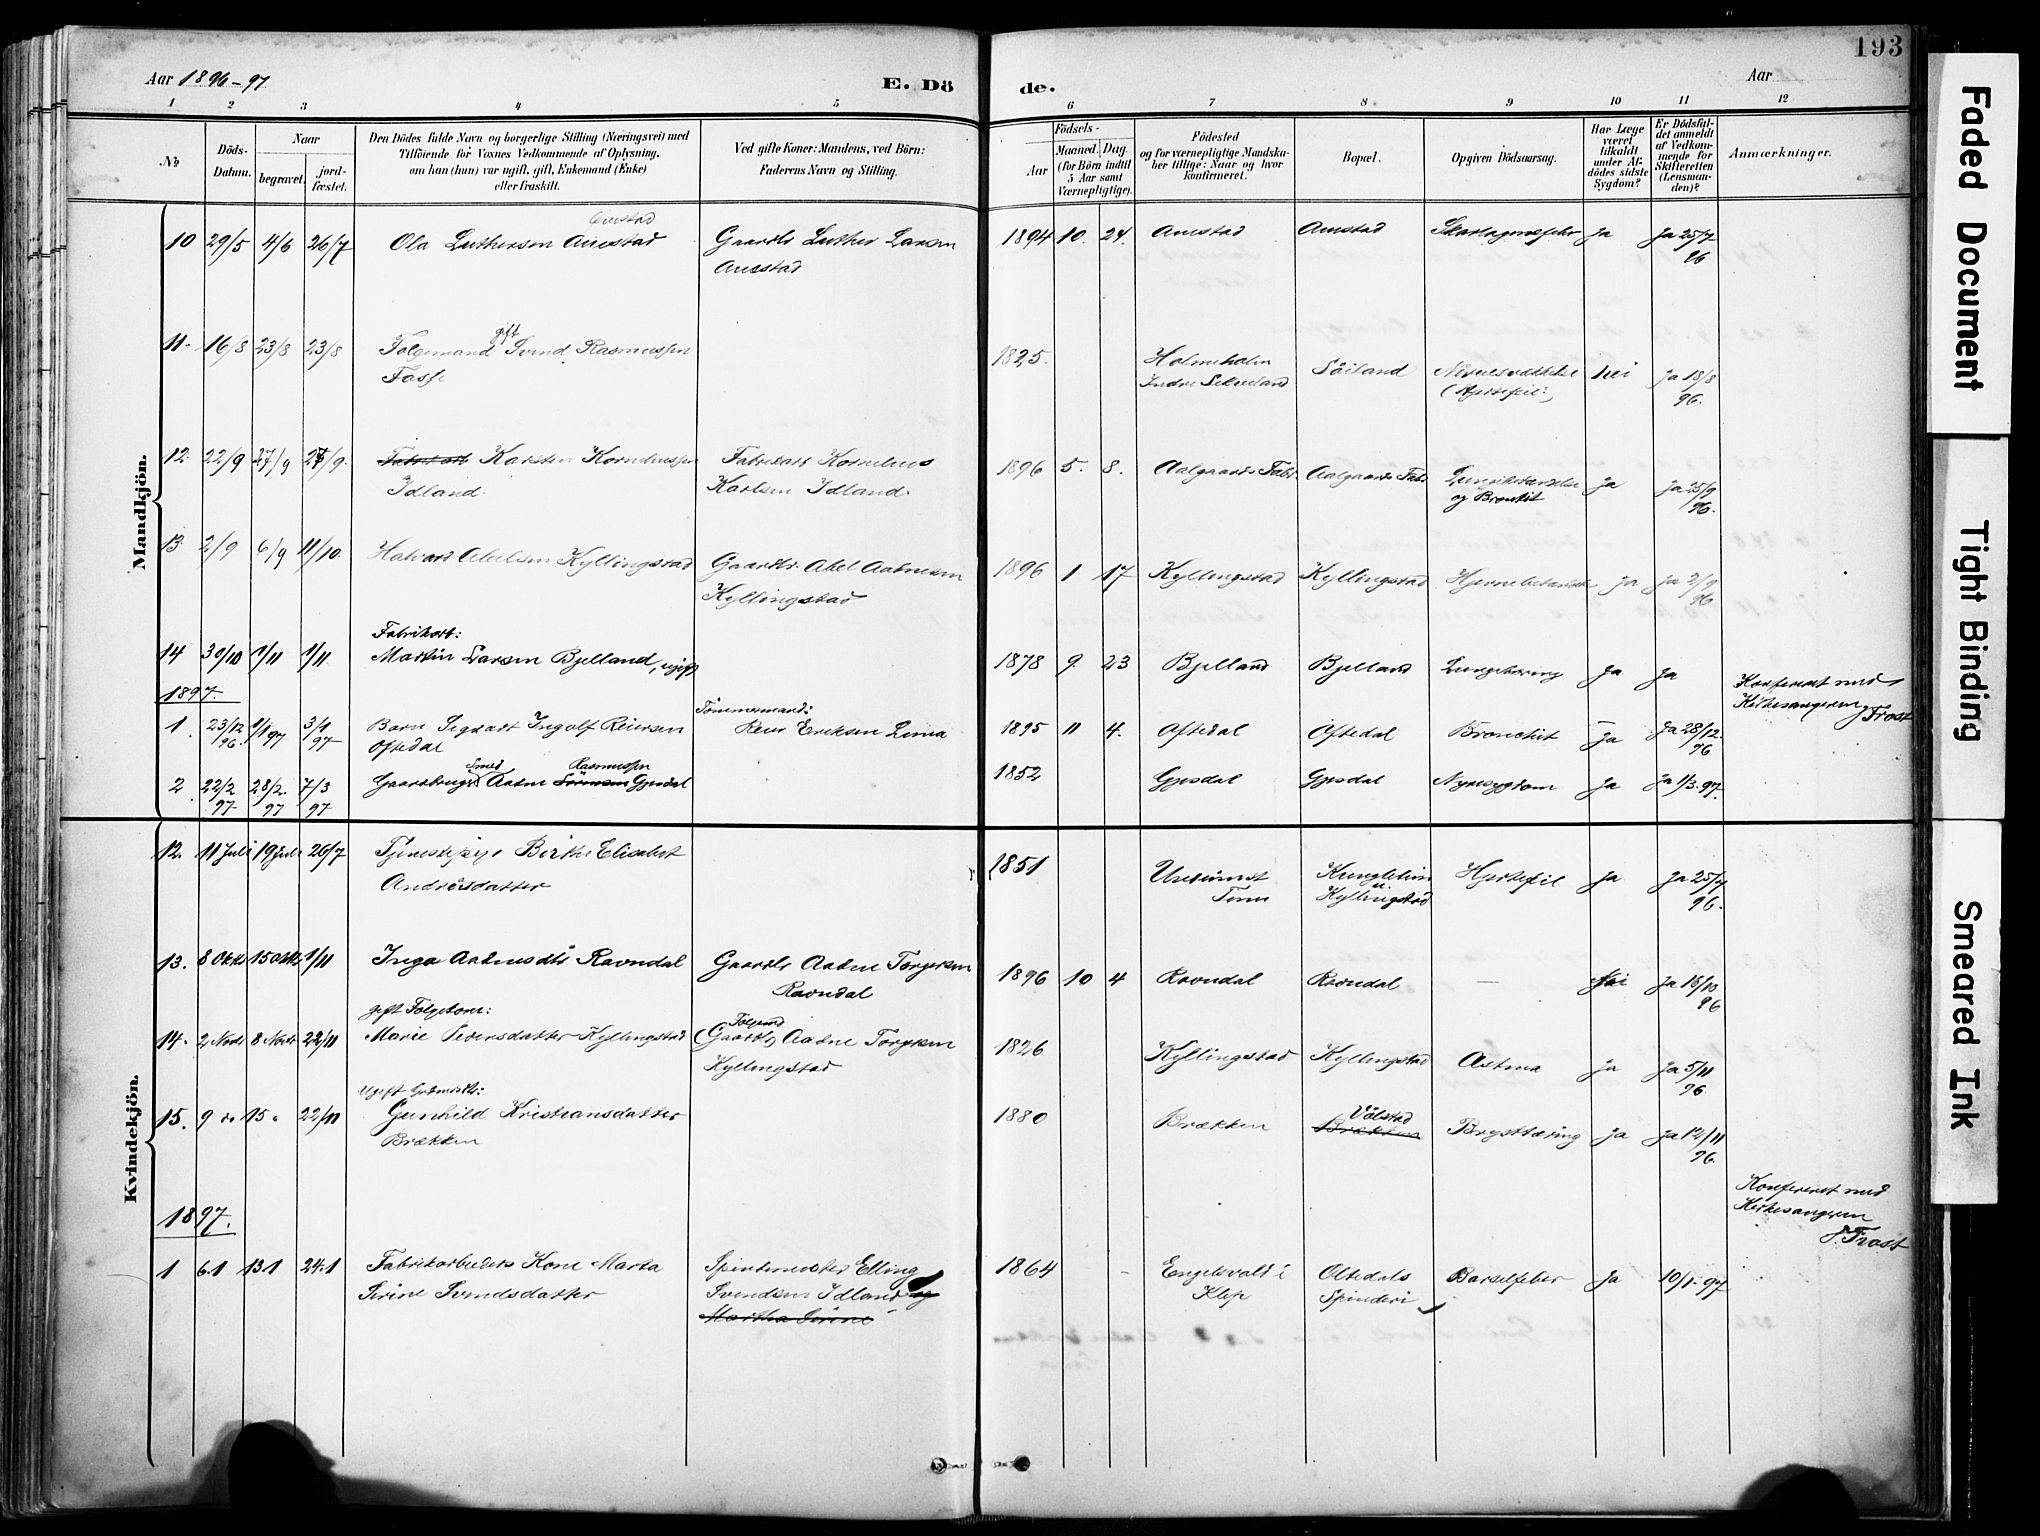 193
Aar 1896-97
E. Dö
de.
Aar
1 2 3 4 5 6 7 8 9 10 11 12
No
Döds-
Datum.
Naar
begravet.
jord-
fæstet.
Den Dödes fulde Navn og borgerlige Stilling (Næringsvei) med
Tilföiende for Voxnes Vedkommende af Oplysning,
om han (hun) var ugift, gift, Enkemand (Enke)
eller fraskilt.
Ved gifte Koner: Mandens, ved Börn:
Faderens Navn og Stilling.
Födsels-
Aar
Maaned. Dag.
(for Börn indtil
5 Aar samt
Værnepligtige).
Födested
og for værnepligtige Mandska-
ber tillige: Naar og hvor
konfirmeret.
Bopæl.
Opgiven Dödsaarsag.
Har Læge
været
tilkaldt
under Af-
dödes sidste
Sygdom?
Er Dödsfal-
det anmeldt
af Vedkom-
mende for
Skifteretten
(Lensman-
den)?
Anmærkninger.
Mandkjön.
10 29/5 4/6 26/7 Ola Luthersen Auestad Gaardbr Luther Larsen 1894 10. 24. Auestad Auestad ja ja 25/7
Auestad 96
11. 16/8 23/8 23/8 Folgemand gift Svend Rasmussen 1825. Söiland nei ja 18/8
Fosse 96.
12. 22/9 27/9 27/9. Fabrikarb Karsten Korneliussen Fabrikarb Kornelius 1896 5. 8. Aalgaards Fabr Aalgaards Fabr ja ja 25/9
Idland. Karlsen Idland. og Bronkit 96.
13. 2/9 6/9 11/10. Abelsen Kyllingstad Gaardbr. Abel Aadnesen 1896 1 17 Kyllingstad Kyllingstad ja ja 2/9
Kyllingstad 96
Fabrikarb:
14 30/10 1/11 1/11 Martin Larsen Bjelland, ugift 1878 9. 23 Bjelland Bjelland Lungetæring ja ja
1897.
Konfereret med
Kirkesangeren
J Frost
Tömmermand:
1. 23/12 96. 1/1 97 3/1 97 Barn Sigvart Ingolf Reiersen Reier Eriksen Lima 1895 11 4. Oftedal Oftedal Bronchit ja ja 28/12.
Oftedal 96
Smed Rasmussen
2 22/2 97 28/2. 97 7/3 97 Gaardbruger Aadne Sörensen Gjesdal 1852 Gjesdal Gjesdal Nyresygdom ja ja 1/3. 97.
Kvindekjön.
12. 11 Juli 19 Juli 26/7 Tjenestepige Birthe Elisabet 1851 Hjertefeil ja ja 25/7
Andreasdatter Time Kyllingstad 96.
13. 8 Oktb 15 Oktb 1/11 Inga Aadnesdtr Ravndal Gaardbr Aadne Torgersen 1896 10 4 Ravndal Ravndal — Nei ja 16/10
Ravndal 96
gift Folgekone:
14. 2 Novbr 8 Novbr 22/11 Marie Pedersdatter Kyllingstad (Gaardbr) Folgemd Aadne Torgersen 1826 Kyllingstad Kyllingstad Astma ja ja 5/11
Kyllingstad 96.
15. 9 " 15 " 22/11 Gunhild Kristiansdatter 1880 Brækken Brækken Brysttæring ja ja 12/11
Brækken 96.
Konfereret med
Kirkesangeren
J. Frost
1897.
1 6.1 13.1 24.1 Fabrikarbeiders Kone Marta Spindemester Elling 1864 - Engelsvold i Oltedals Barselfeber ja 10/1. 97
Sirine Svendsdatter Svendsen Idland og Klep Spinderi
Martha Sirine
Faded Document
Tight Binding
Smeared Ink